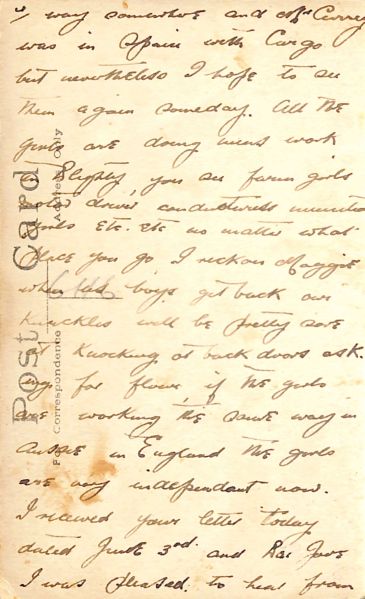 way somewhere and Mr Currey
was in Spain with Cargo
but nevertheless I hope to see
them again someday. All the
girls are doing mens work
in Blighty, you see farm girls
motor driver, conductress munition
girls etc. etc no matter what
place you go I reckon Maggie
when us boys get back our
knuckles will be pretty sore
at knocking at back doors ask.
ing for flour, if the girls
are working the same way in
Aussie in England the girls
are very independant now.
I received your letter today
dated June 3rd. and
I was pleased. to hear from
Post Card
For Correspondence
Address Only